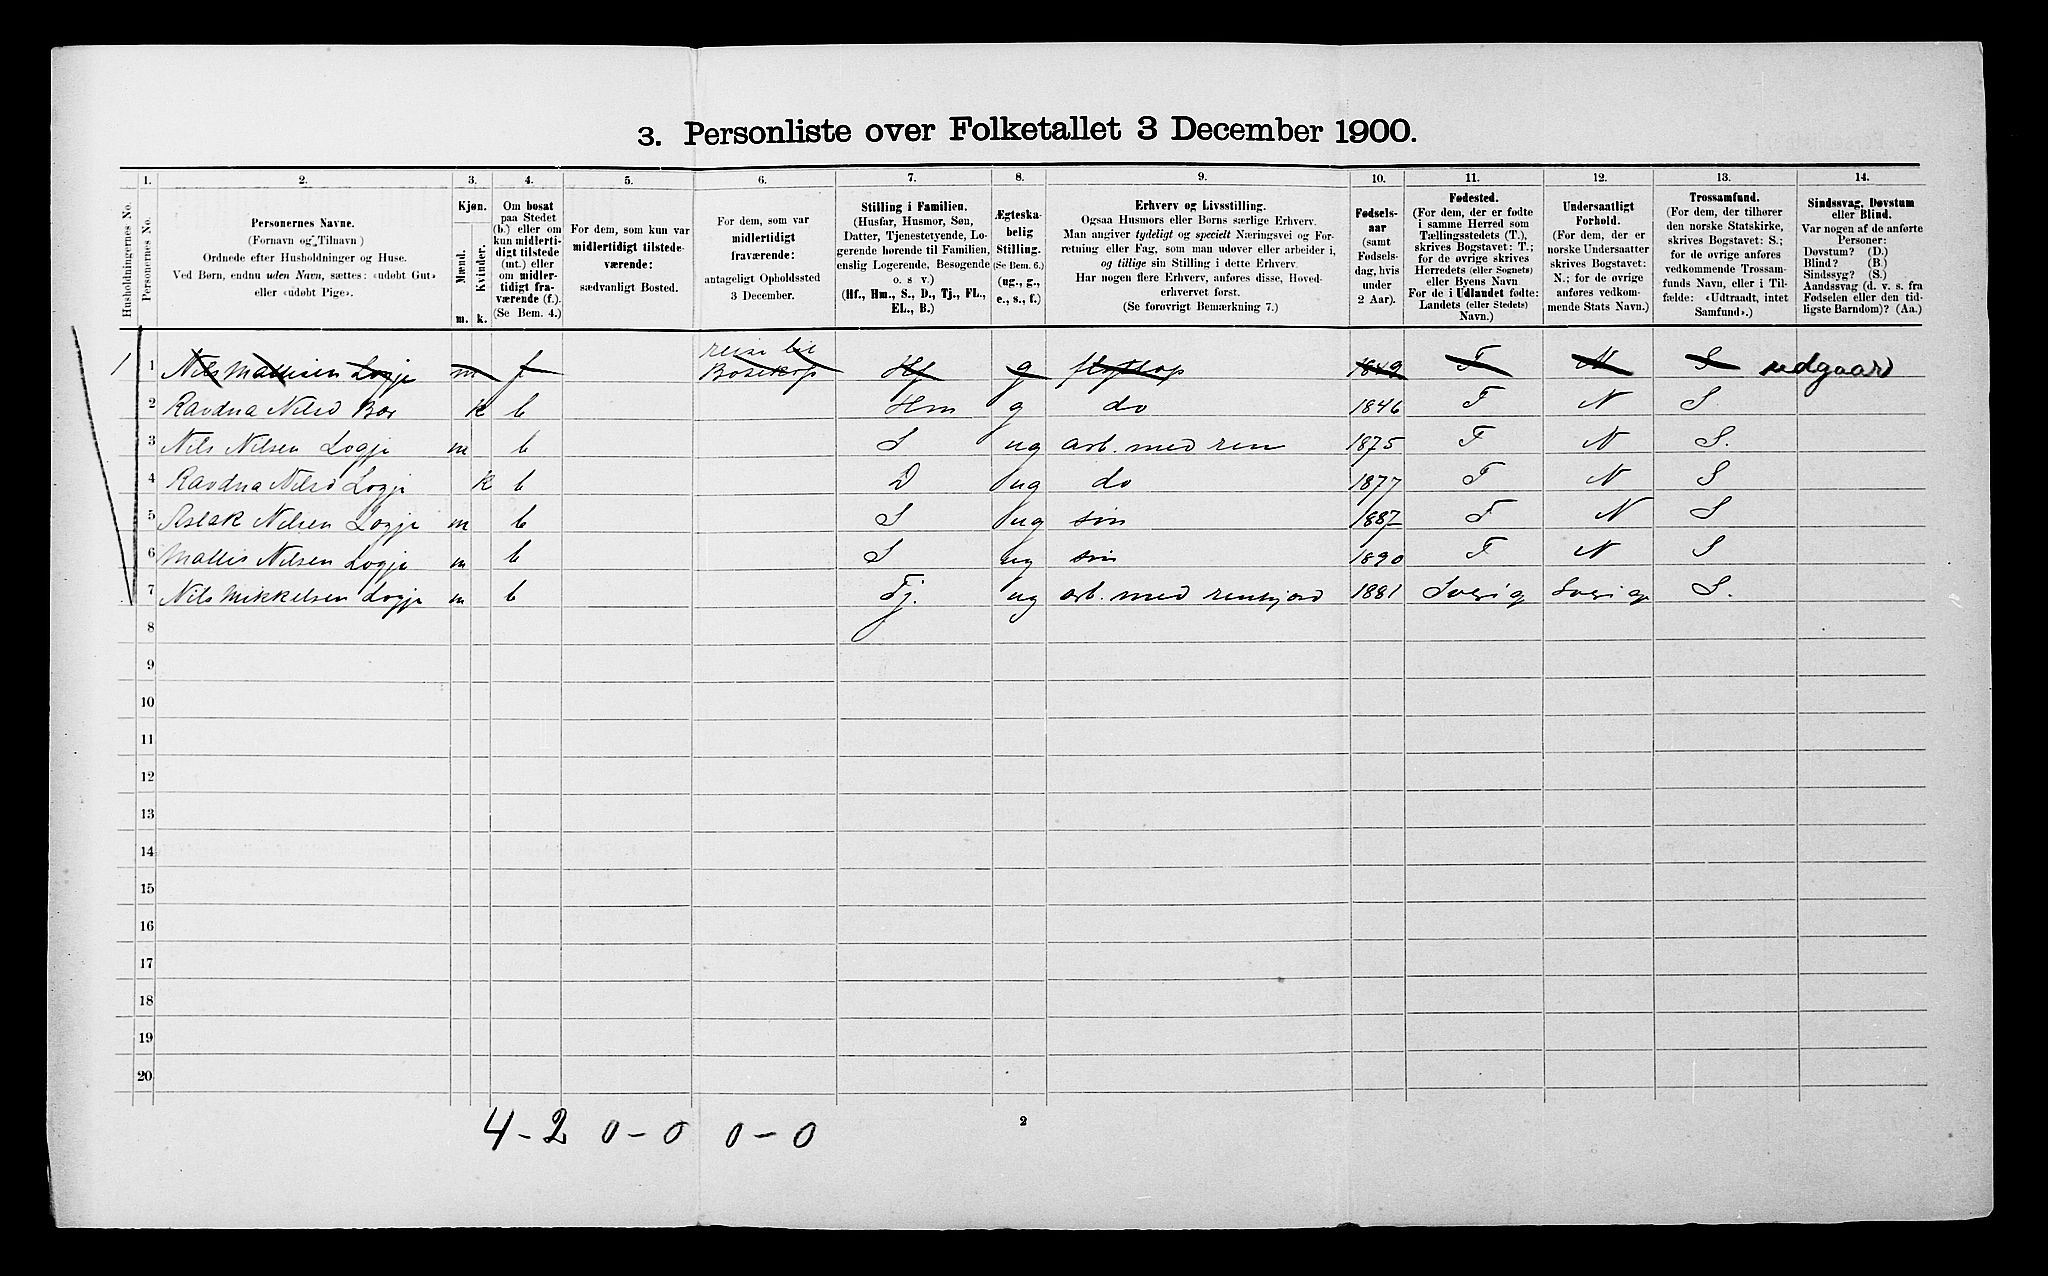 3. Personliste over Folketallet 3 December 1900.
Husholdningernes No.
1.
Personernes No.
2.
Personernes Navne.
(Fornavn og Tilnavn)
Ordnede efter Husholdninger og Huse.
Ved Børn, endnu uden Navn, sættes: «udøbt Gut»
eller «udøbt Pige».
3.
Kjøn.
Mænd.
Kvinder.
m. k.
4.
Om bosat
paa Stedet
(b.) eller om
kun midlerti-
digt tilstede
(mt.) eller
om midler-
tidigt fra-
værende (f.).
(Se Bem. 4.)
5.
For dem, som kun var
midlertidigt tilstede-
værende:
sædvanligt Bosted.
6.
For dem, som var
midlertidigt
fraværende:
antageligt Opholdssted
3 December.
7.
Stilling i Familien.
(Husfar, Husmor, Søn,
Datter, Tjenestetyende, Lo-
gerende hørende til Familien,
enslig Logerende, Besøgende
o. s v.)
(Hf., Hm., S., D., Tj., FL.,
EL., B.)
8.
Ægteska-
belig
Stilling.
(Se Bem. 6.)
(ug., g.,
e., s., f.)
9.
Erhverv og Livsstilling.
Ogsaa Husmors eller Børns særlige Erhverv.
Man angiver tydeligt og specielt Næringsvei og For-
retning eller Fag, som man udøver eller arbeider i,
og tillige sin Stilling i dette Erhverv.
Har nogen flere Erhverv, anføres disse, Hoved-
erhvervet først.
(Se forøvrigt Bemærkning 7.)
10.
Fødsels-
aar
(samt
Fødsels-
dag, hvis
under
2 Aar).
11.
Fødested.
(For dem, der er fødte
i samme Herred som
Tællingsstedets (T.),
skrives Bogstavet: T.;
for de øvrige skrives
Herredets (eller Sognets)
eller Byens Navn
For de i Udlandet fødte:
Landets (eller Stedets)
Navn.)
12.
Undersaatligt
Forhold.
(For dem, der er
norske Undersaatter
skrives Bogstavet:
N.; for de øvrige
anføres vedkom-
mende Stats Navn.)
13.
Trossamfund.
(For dem, der tilhører
den norske Statskirke,
skrives Bogstavet: S.;
for de øvrige anføres
vedkommende Trossam-
funds Navn, eller i Til-
fælde: «Udtraadt, intet
Samfund».)
14.
Sindssvag, Døvstum
eller Blind.
Var nogen af de anførte
Personer:
Døvstum? (D.)
Blind? (B.)
Sindssyg? (S.)
Aandssvag (d. v. s. fra
Fødselen eller den tid-
ligste Barndom)? (Aa.)
reise til
1 1 Nils Mattisen Logje m f Bosekop Hf g flytlap 1849 T N S udgaar
2 Ravdna Nilsd Bær k b Hm g do 1846 T N S
3 Nils Nilsen Logje m b S ug arb. med ren 1875 T N S.
4 Ravdna Nilsd Logje k b D ug do 1877 T N S
5 Aslak Nilsen Logje m b S ug søn 1887 T N S
6 Mattis Nilsen Logje m b S ug søn 1890 T N S
7 Nils Mikkelsen Logje m b Tj. ug arb. med renhjord 1881 Sverig Sverig S.
8
9
10
11
12
13
14
15
16
17
18
19
20
4-2 0-0 0-0
2